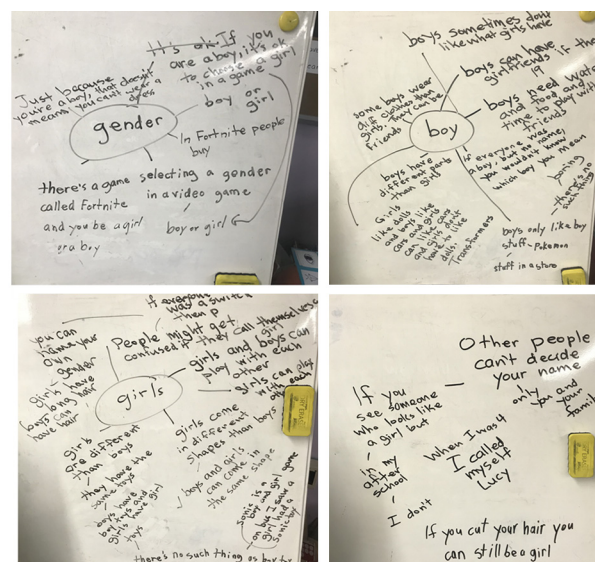 It's ok If you
are a boy, it's ok
to choose a girl
in a game
boy or
girl
Just because
you're a boy, that doesn't
means you can't wear a
dress
gender
In Fortnite people
buy
there's a game
called Fortnite
and you be a girl
or a boy
selecting a gender
in a video game
boy or girl
boys sometimes don't
like what girls have
boys can have
girlfriends if they
19
some boys wear
diff clothes than
girls. They can be
friends
boy
boys need water
and food and
time to play with
If everyone was
a boy, but no name,
you wouldn't know
which boy you mean
boring
there's no
such thing
boys have
different parts
than girl
Girls
like dolls
and boys like
cars and girls
can like cars
and girls don't
have to like
dolls.
Transformers
boys only like boy
stuff - Pokemon
stuff in a store
if everyone
was a switch
then p
you can
name your
own
gender
People might get
confused if they call themselves
girls and boys can
play with each
other
girls can play
with each
girls have
long hair
boys can
have hair
girls
girls
are different
than boys
they have the
same toys
boys have
boy toys and
girls have girl
toys
girls come
in different
shapes than boys
boys and girls
can come in
the same shape
Sonic is a
boy and girl game
on but I saw a
girl had a
Sonic boy
there's no such thing as boy toy
Other people
can't decide
your name
only you and your
family
If you
see someone
who looks like
a girl but
In my
after
school
I don't
When I was 4
I called
myself
Lucy
If you cut your hair you
can still be a girl